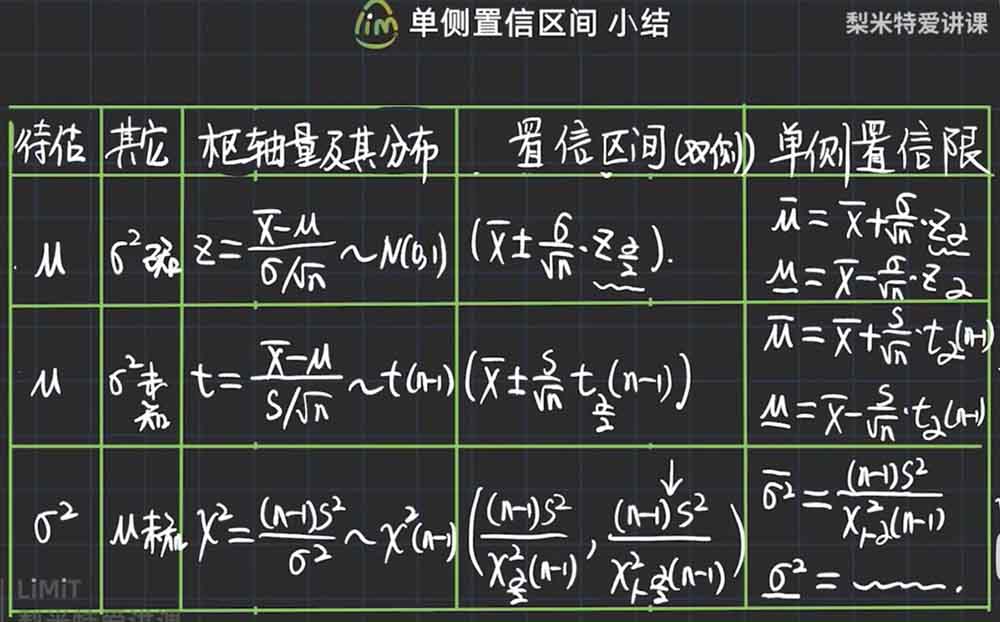 lim 单侧置信区间 小结
梨米特爱讲课
待估 其它 枢轴量及其分布 置信区间(双侧) 单侧置信限
μ σ²已知 Z = (X̄-μ)/(σ/√n) ~ N(0,1) (X̄ ± σ/√n · Z_{α/2}). μ̄ = X̄ + σ/√n · Z_α
μ̲ = X̄ - σ/√n · Z_α
μ σ²未知 t = (X̄-μ)/(S/√n) ~ t(n-1) (X̄ ± S/√n t_{α/2}(n-1)) μ̄ = X̄ + S/√n · t_α(n-1)
μ̲ = X̄ - S/√n · t_α(n-1)
σ² μ未知 χ² = (n-1)S²/σ² ~ χ²(n-1) ((n-1)S²/χ²_{α/2}(n-1), (n-1)S²/χ²_{1-α/2}(n-1)) σ̄² = (n-1)S²/χ²_{1-α}(n-1)
σ̲² =
LIMIT